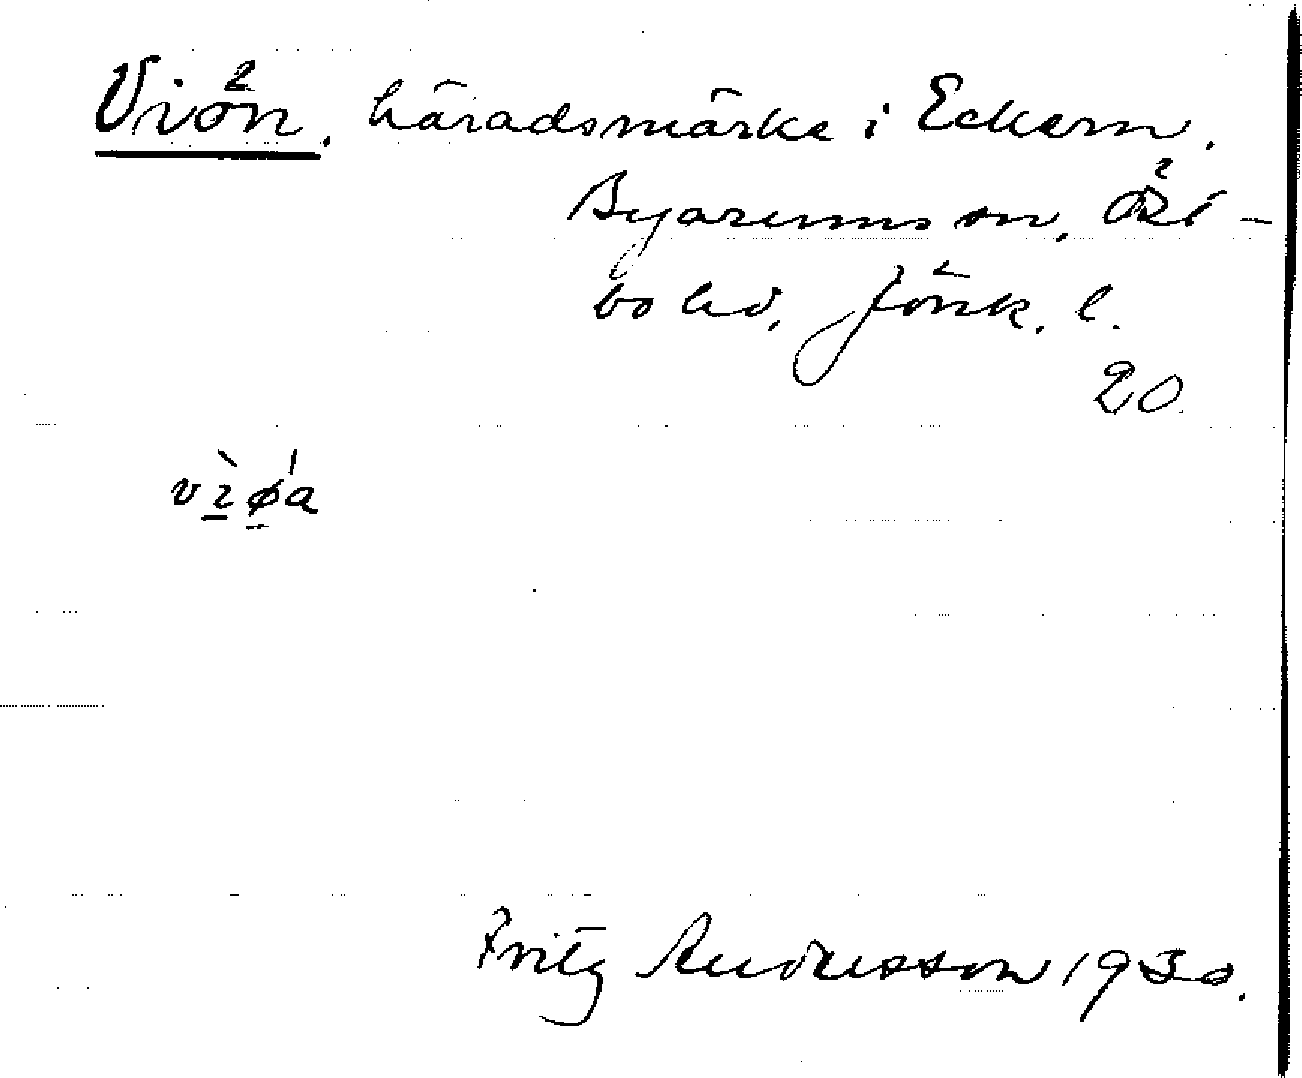 Viön, häradsmärke i Eckern.
Byarums sn, Öst-
bo hd, Jönk. l.
20
vìøá
Fritz Andersson 1930.